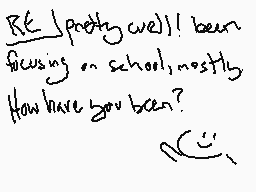 RE pretty well! been
focusing on school, mostly
How have you been?